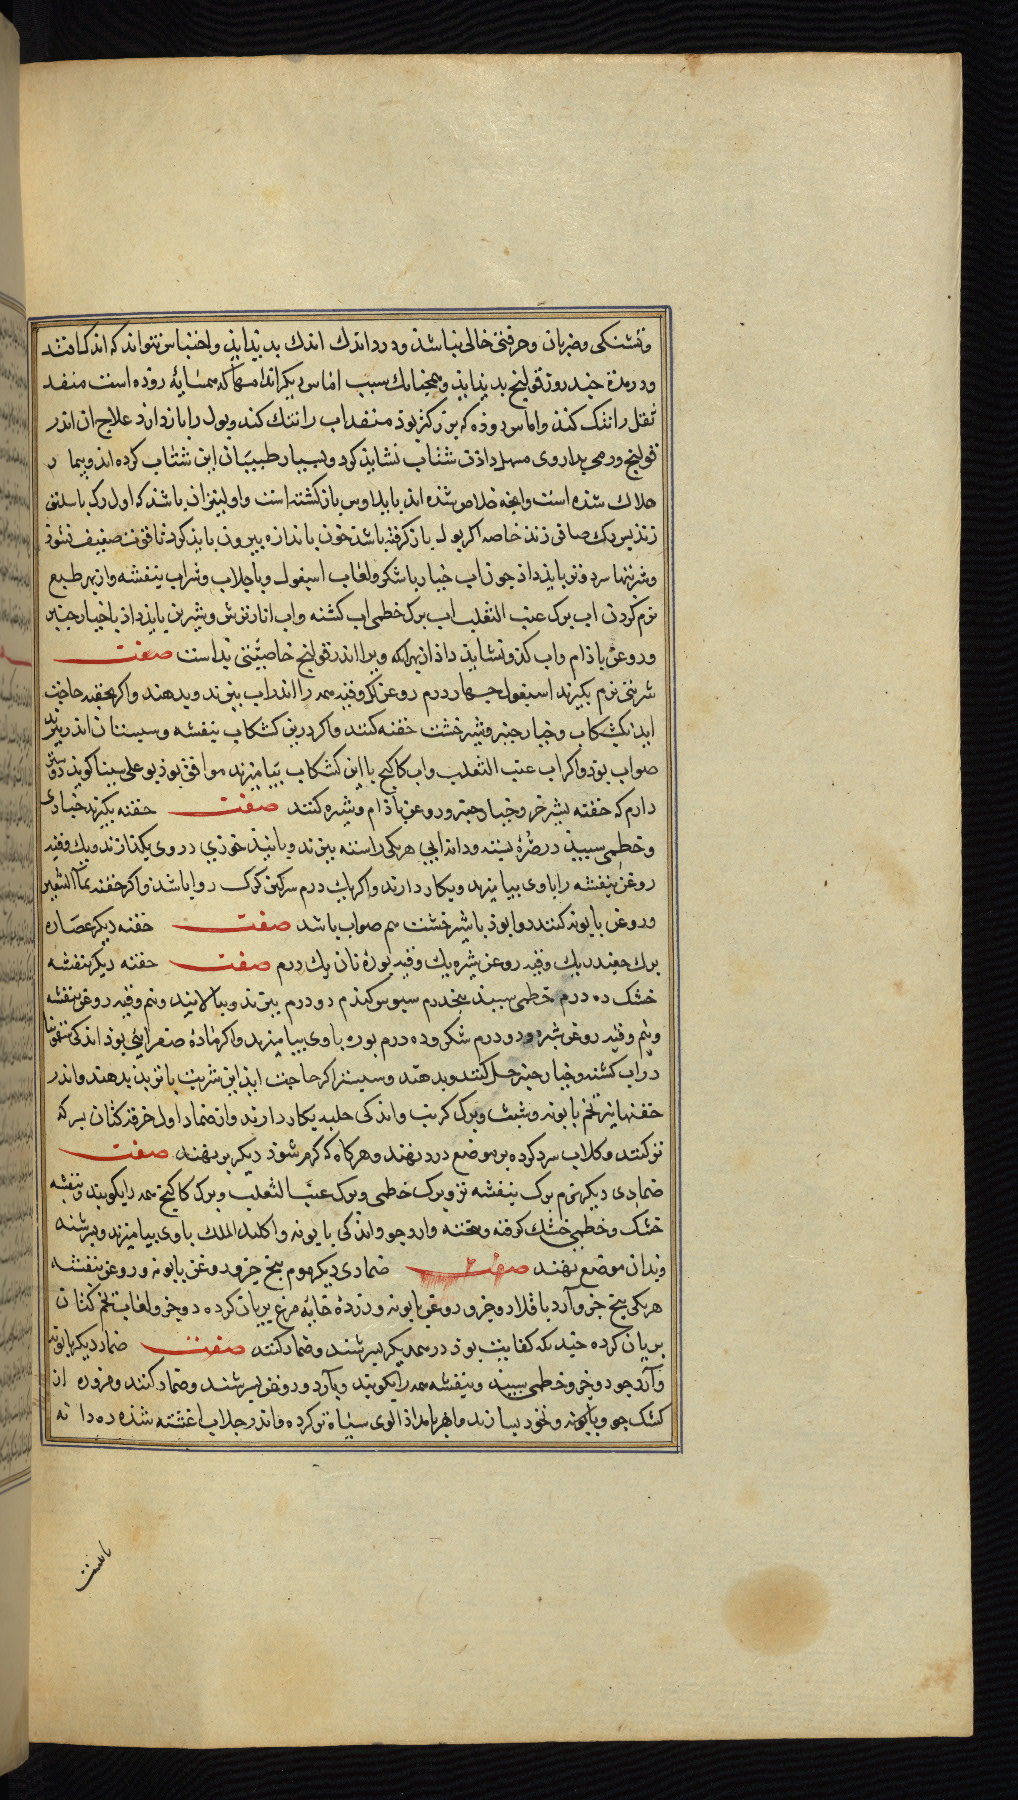 وتشنکی وضربان وحرقتی خالی نباشذ ودرد اندک اندک بدیذ ایذ واحتباس نتواند که اندک افتد
ودر مدة جند روز قولنج بدیذ ایذ وهمجنانک بسبب اماس دیکر اندامها که همسایۀ روده است منفد
ثفل را تنک کند واماس روده که بزرکتر بوذ منفد اب را تنک کند وبول را باز دارد علاج ان اندر
قولنج ورمی بداروی مسهل داذن شتاب نشایذ کرد وبسیار طبیبان این شتاب کرده اند وبیمار
هلاک شذه است وانجه خلاص شذه اند با بلاوس باز کشته است واولیتر ان باشذ که اول رک باسلیق
زنند بس رک صافن زنند خاصه اکر بول باز کرفته باشذ خون باندازه بیرون بایذ کرد تا قوت ضعیف نشوذ
وشربتها سرد وتر بایذ داذ جون اب خیار باشکر ولعاب اسبغول وباجلاب وشراب بنفشه واز بهر طبع
نرم کردن اب برک عنب الثعلب اب برک خطمی اب کشنه واب انار ترش وشیرین بایذ داذ باخیارجنبر
وروغن باذام واب کدو نشایذ داذ از بهر انکه ویرا اندر قولنج خاصیتی بد است صفت
شربتی نرم بکیرند اسبغول جهار درم روغن کل وقیه همه را اندر اب بزنند وبدهند واکر بحقنه حاجت
ایذ بکشکاب وخیارجنبر وشیرخشت حقنه کنند واکر درین کشکاب بنفشه وسبستان اندر بزند
صواب بوذ واکر اب عنب الثعلب واب کاکنج با این کشکاب بیامیزند موافق بوذ بو علی سینا کویذ دوست
دارم که حقنه بشیر خر وخیارجنبر وروغن باذام وشیره کنند صفت حقنه بکیرند خبازی
وخطمی سبید در صره بسته ودانه ابی هریکی راسته ببزند وبانیذ خوزی در وی بکدازند ویک وقیه
روغن بنفشه را باوی بیامیزند وبکار دارند واکر یک درم سرکین کرک روا باشذ واکر حقنه بماآ الشعیر
وروغن بابونه کنند روا بوذ باشیرخشت هم صواب باشد صفت حقنه دیکر عصاره
برک جغندر یک وقیه روغن شیره یک وقیه بورۀ نان یک درم صفت حقنه دیکر بنفشه
خشک ده درم خطمی سبید بنجدرم سبوس کندم دو درم ببزند وببالایند ونیم وقیه روغن بنفشه
ونیم وقیه روغن شیره ودو درم شکر وده درم بوره باوی بیامیزند واکر مادۀ صفرایی بوذ اندکی سقمونیا
در اب کشنه وخیارجنبر حل کنند وبدهند وسبستر اکر حاجت ایذ این شربت باتربد بدهند واندر
حقنها نیز تخم بابونه وشبث وبرک کرنب واندکی حلبه بکار دارند واز ضماد اول خرقه کتان بسرکه
تر کنند وکلاب سرد کرده بر موضع درد نهند وهرکاه که کرم شوذ دیکر بر نهند صفت
ضمادی دیکر نرم برک بنفشه تر وبرک خطمی وبرک عنب الثعلب وبرک کاکنج همه را بکوبند وبنفشه
خشک وخطمی خشک کوفته وبیخته وارد جو واندکی بابونه واکلیل الملک باوی بیامیزند وبسرشند
وبدان موضع نهند صفت ضمادی دیکر موم بنج جزو روغن بابونه وروغن بنفشه
هریکی بنج جزو آرد باقلا دو جزو روغن بابونه وزردۀ خایۀ مرغ بریان کرده دو جزو لعاب تخم کتان
بریان کرده جندانکه کفایت بوذ در همدیکر بسرشند وضماد کنند صفت ضماد دیکر بابونه
وآرد جو دو جزو وخطمی سبید وبنفشه همه را بکوبند وبآرد وروغن بسرشند وضماد کنند ومزوره از
کشک جو وبابونه ونخود بسازند وماهر بامداذ الوی سیاه تر کرده واندر جلاب اغشته شذه ده دانه